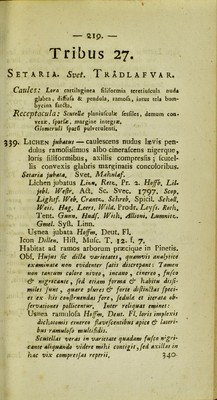 — 219. —
Tribus 27.
SETARIA. Svet. TRÅDLAFVAR.
Caules: Lora cartilaginea filiformia teretiuscula nuda
glabra, diffusa & pendula, ramosa, intus tela bom-
bycina farcta.
Receptacula: Scutellæ planiusculæ sessiles, demum con-
vexæ, sparsæ, margine integræ.
Glomeruli sparsi pulverulenti.
339. LICHEN jubatus — caulescens nudus lævis pen-
dulus ramosissimus albo cinerascens nigerque,
loris filiformibus, axillis compressis; scutel-
lis convexis glabris marginatis concoloribus.
Setaria jubata, Svet. Mahnlaf.
Lichen jubatus Linn, Retz, Pr. 2. Hoffm, Lil-
jebl. Westr, Act, Sc. Svec. 1797. Scop,
Lightf. Web, Crantz, Schreb, Spicil. Scholl,
Weis, Hag, Leers, Wild. Prodr. Leyss. Roth,
Tent. Gunn, Huds, With, Allioni, Lumnitz.
Gmel. Syst. Linn.
Usnea jubata Hoffm, Deut, Fl.
Icon Dillen, Hist, Musc. T, 12. f. 7.
Habitat ad ramos arborum præcique in Pinetis.
Obs, Hujus sic dictæ varietates, quamvis analytice
examinatæ non evidenter satis discrepant: Tamen
non tantum calore niveo, incano, cinereo, fusco
& nigrecante, sed etiam forma & habitu dissi-
miles sunt, quare plures & forte distinctas speci-
es ex his construendas fore, sedula et iterata ob-
servationes pollicentur, Inter reliquas eminet:
Usnea ramulosa Hoffm, Deut. Fl, loris implexis
dichotomis cinereo flavescentibus apice & lateri-
bus ramulosis multifidis.
Scutellas veras in varietate quadam fusco nigri-
cante aliquando videre mihi contigit, sed axillas in
hac vix compressas reperii,
340